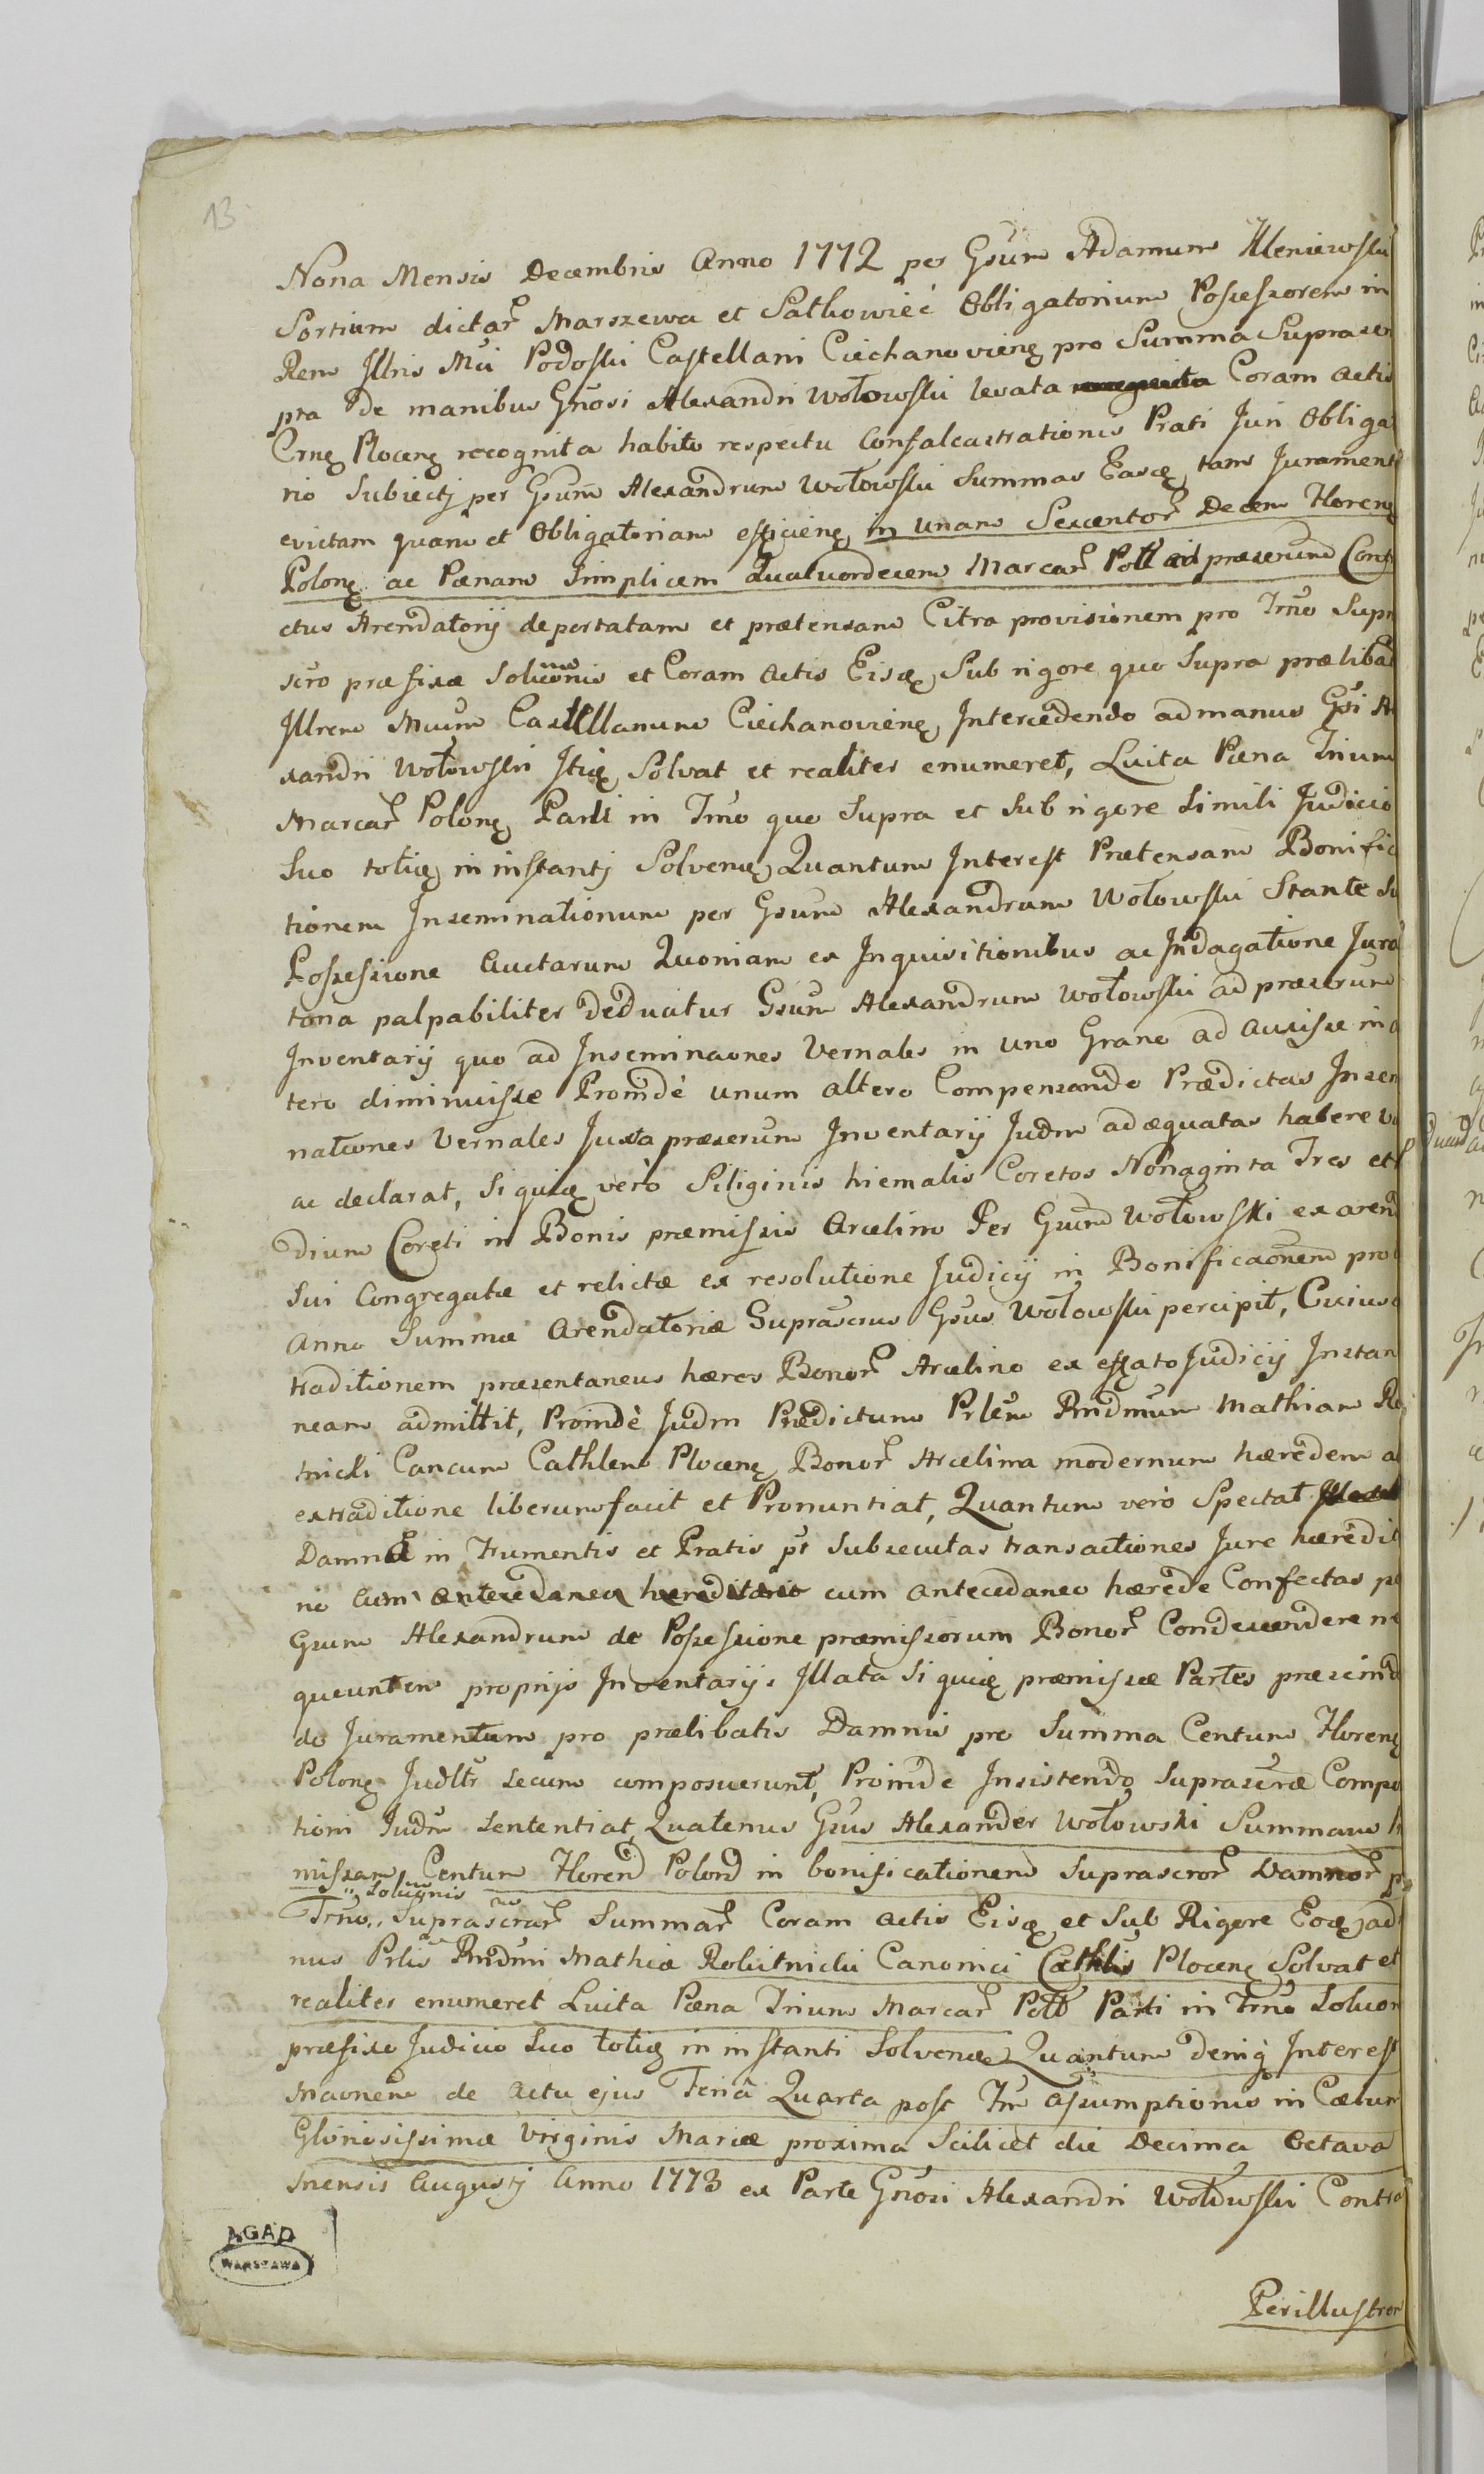 13
Nona Mensis Decembris Anno 1772 per Gsum Adamum Kleniewski
Sortium dictar Marszewa et Satkowięć Obligatorium Possessorem in
Rem Jllris Mci Podoski Castellani Ciechanoviens pro Summa Suprascr
pta de manibus Gnosi Alexandri Wołowski levata Coram actis
Crnę Plocenę recognita habito respectu Confalcastrationis Prati Juri Obliga
rio Subiectj per Gsum Alexandrum Wołowski Summas Easę tam Jurament
evictam quam et Obligatoriam efficienę in unam Sexcentor Decem Florenę
Polonę ac Pœnam Simplicem Quatuordecem Marcar Poll ad præscrum Cont
ctus Arendatorij deportatam et prætensam Citra provisionem pro Trno Supra
scro præfixæ Soluonis et Coram Actis Eisę Sub rigore quo Supra prælibat
Jllrem Mcum Castellanum Ciechanovienę Intercedendo ad manus Gsi A
xandri Wołowski Jtię Solvat et realiter enumeret, Luita Pœna Trium
Marcar Polonę Parti in Trno quo Supra et sub rigore simili Judicio
Suo totię in instantj Solvenę, Quantum Interest Prætensam Bonific
tionem Inseminationum per Gsum Alexandrum Wołowski Stante S
Possessione Auctarum Quoniam ex Inquisitionibus ac Indagatione Jura
toria palpabiliter Deducitur Gsum Alexandrum Wołowski ad præscrum
Inventarij quo ad Inseminaones Vernales in uno Grano ad auxisse in a
tero diminuisse Proindè unum altero Compensando Prædictas Insem
nationes Vernales Juxta præscrum Inventarij Judm adæquatas habere v
ac declarat, Siquię verò Siliginis hiemalis Coretos Nonaginta Tres et
dium Coreti in Bonis præmissis Arcelino Per Gsum Wołowski ex arend
Sui Congregatæ et relictæ ex resolutione Judicij in Bonificaonem pro
Anno Summæ Arendatoriæ Suprascrus Gsus Wołowski percipit, Cuius
traditionem præsentaneus hæres Bonor Arcelino ex effato Judicij Instan
neam admittit, Proindè Judm Prædictum Prlem Rndmum Mathiam R
tnicki Cancum Cathlem Plocenę Bonor Arcelina modernum hæredem a
extraditione liberum facit et Pronuntiat, Quantum verò Spectat
Damna in frumentis et Pratis pt Subsecutas transactiones Jure hæredit
rio cum antecedaneo hærede Confectas p
Gsum Alexandrum de Possessione præmissorum Bonor Condescendere n
queuntem proprijs Inventarijs Jllata Siquię præmissæ Partes præscind
do Juramentum pro prælibatis Damnis pro Summa Centum Florenę
Polonę Judltr secum composuerunt, Proinde Insistendo Suprascræ Compo
tioni Judm Sententiat, Quatenus Gsus Alexander Wołowski Summam
missam Centum Floren Polon in bonificationem Suprascror Damnor p
Trno Soluonis Suprascrar Summar Coram Actis Eisę et Sub Rigore Eoę ad
nus Prlis Rndmi Mathiæ Rokitnicki Canonici Cathlis Plocenę Solvat et
realiter enumeret Luita Pœna Trium Marcar Poll Parti in Trno Soluon
præfixo Judicio Suo totię in instanti Solvenę, Quantum deniq Interest
maonem de Actu ejus Feriâ Quarta post Fm Assumptionis in Cœlum
Gloriosissimæ Virginis Mariæ proxima Scilicet die Decima Octava
Mensis Augustj Anno 1773 ex Parte Gnosi Alexandri Wołowski Contra
Perillustrem
AGAD
WARSZAWA